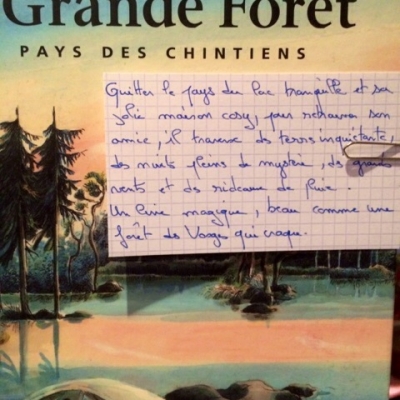 Grande Forêt
PAYS DES CHINTIENS
Quitter le pays du lac tranquille et sa
jolie maison cosy, pour retrouver son
amie, il traverse des terres inquiétante,
des nuits pleins de mystère, des grands
vents et des rideaux de pluie.
Un livre magique, beau comme une
forêt des Vosges qui craque.